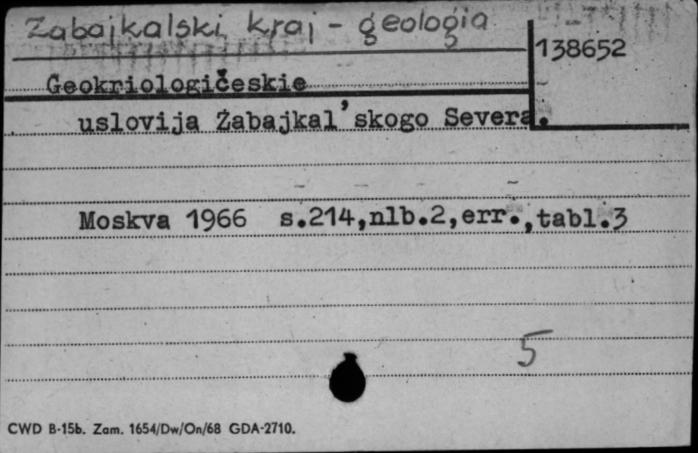 Zabajkalski kraj - geologia
138652
Geokriologičeskie
uslovija Zabajkal'skogo Severa.
Moskva 1966 s.214,nlb.2,err.,tabl.3
5
CWD B-15b. Zam. 1654/Dw/On/68 GDA-2710.